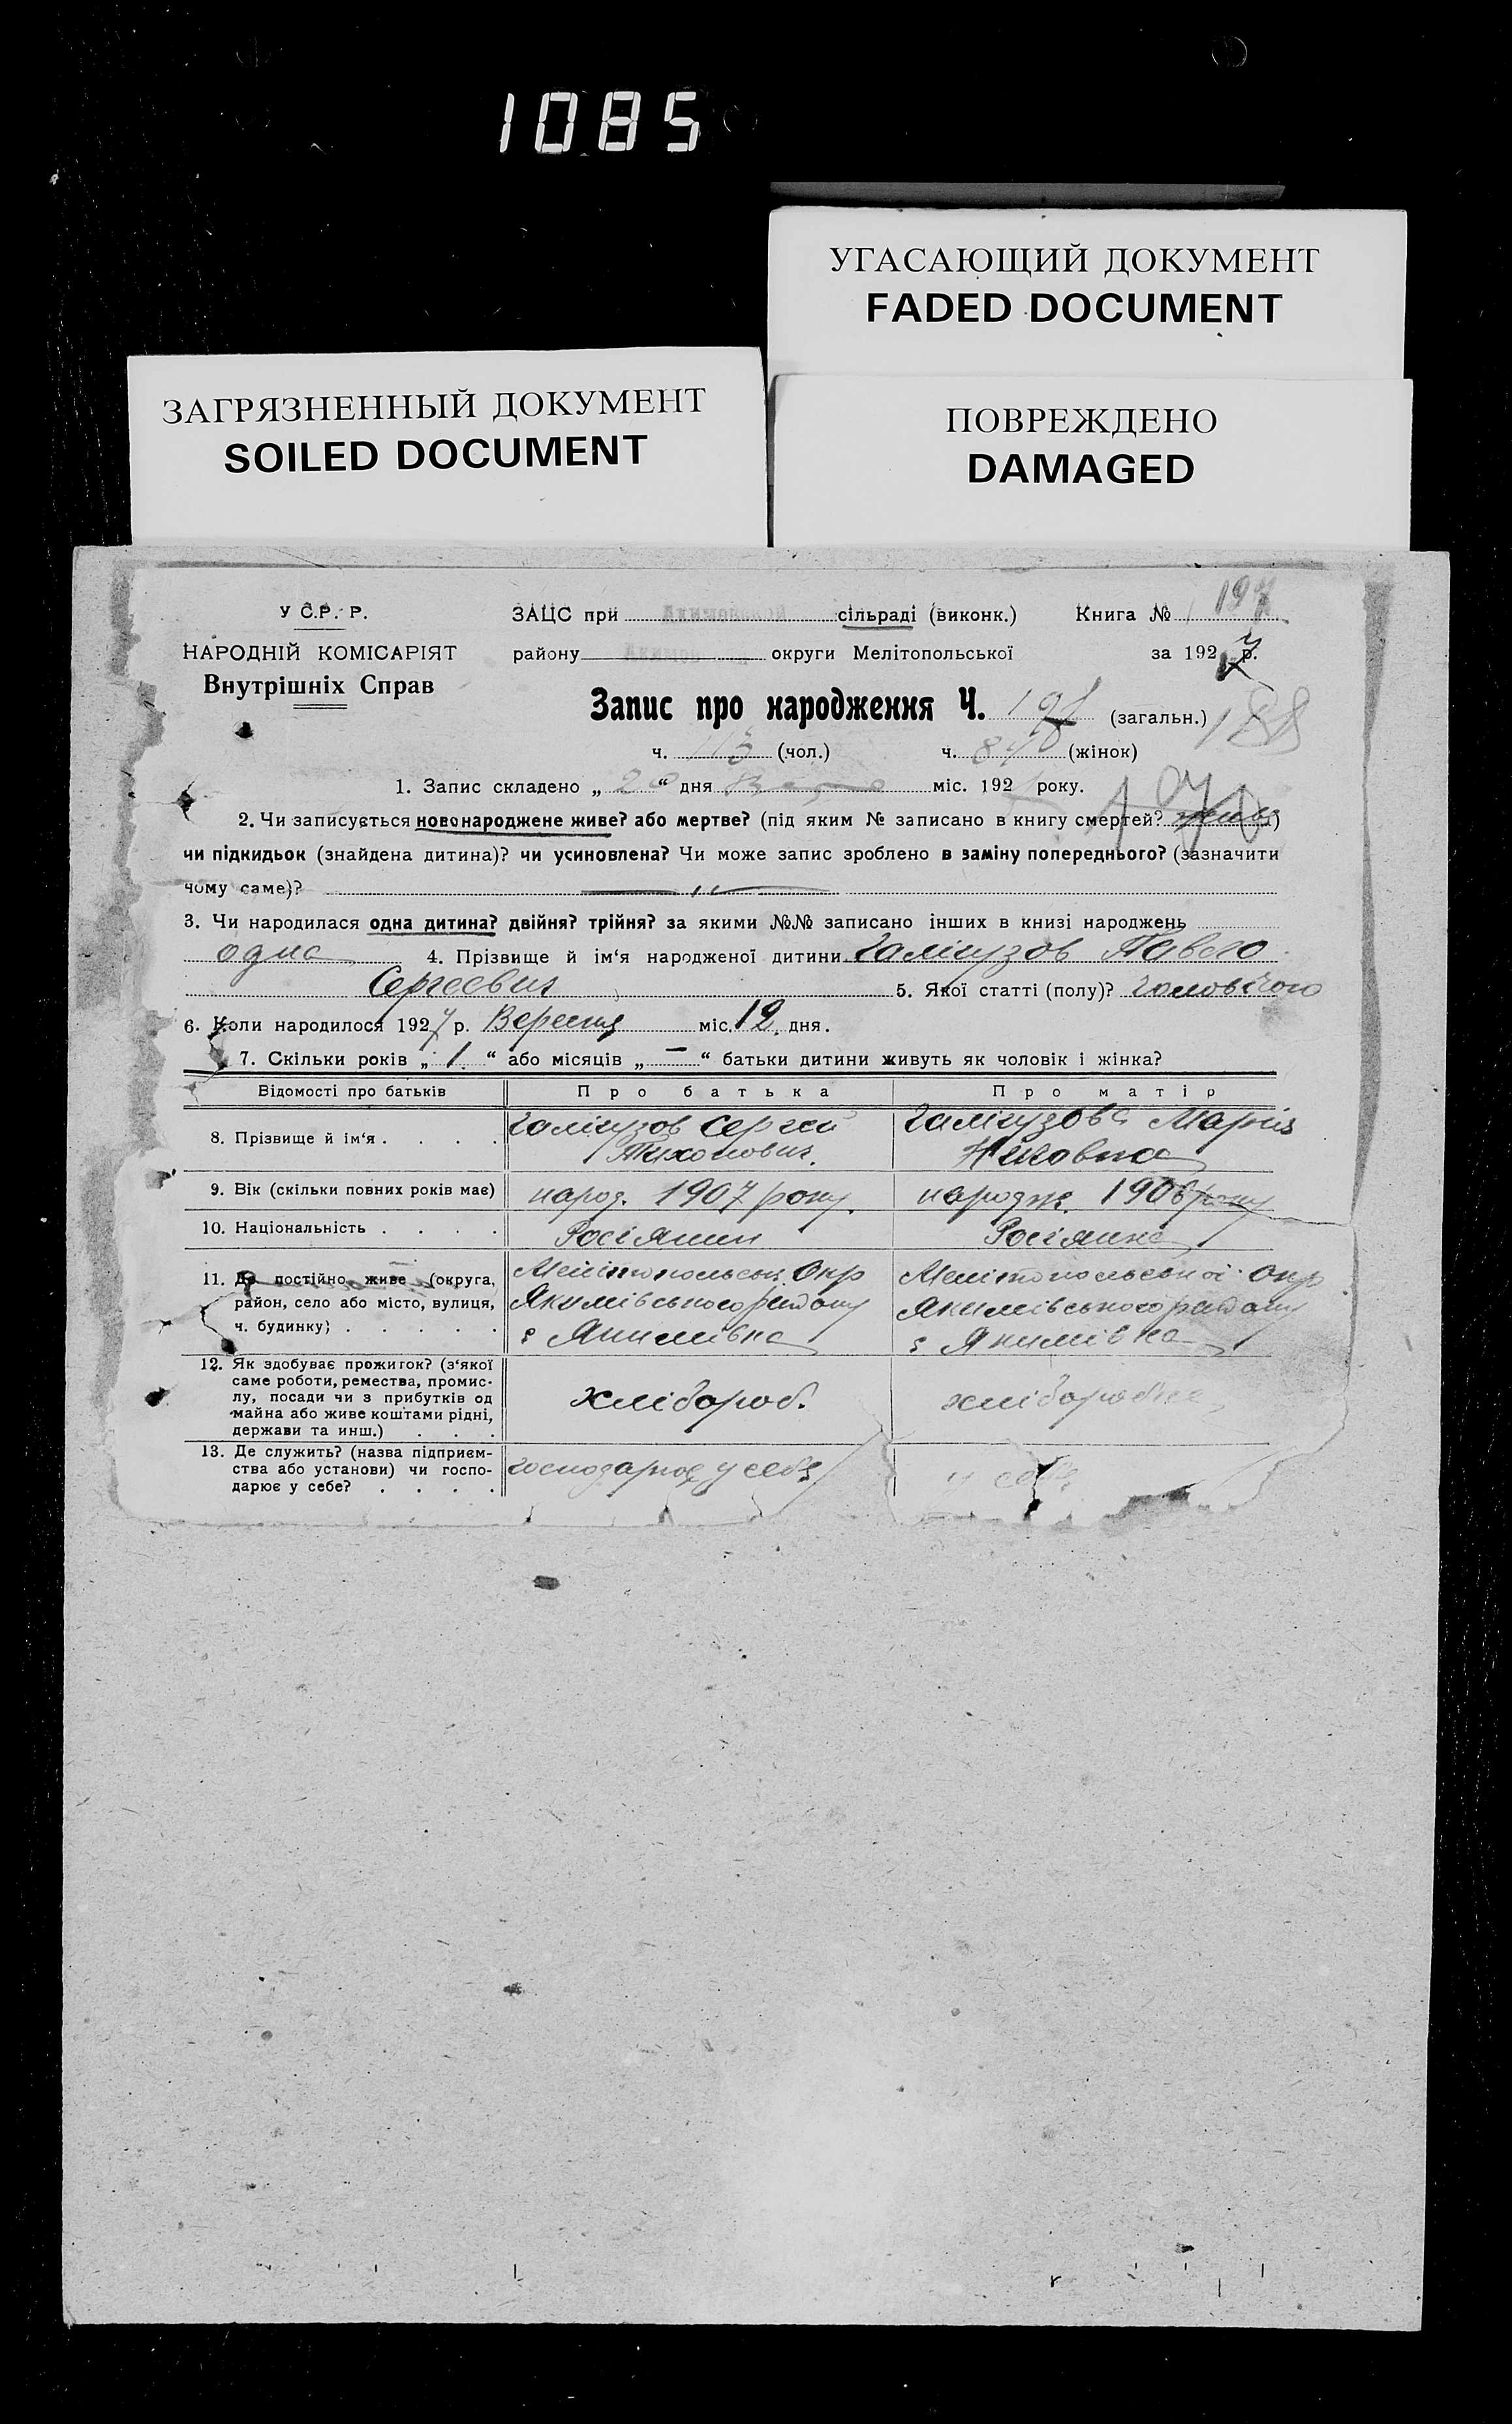 1085
УГАСАЮЩИЙ ДОКУМЕНТ
FADED DOCUMENT
ЗАГРЯЗНЕННЫЙ ДОКУМЕНТ
SOILED DOCUMENT
ПОВРЕЖДЕНО
DAMAGED
У С.Р. Р.
НАРОДНІЙ КОМІСАРІЯТ
Внутрішніх Справ
ЗАЦС при Акимовской сільраді (виконк.) Книга №
району Акимов округи Мелітопольської за 1927 р.
Запис про народження Ч. (загальн.)
ч. 113 (чол.) ч. (жінок)
1. Запис складено „ “ дня міс. 192 року.
2. Чи записується новонароджене живе? або мертве? (під яким № записано в книгу смертей? живе)
чи підкидьок (знайдена дитина)? чи усиновлена? Чи може запис зроблено в заміну попереднього? (зазначити
чому саме)?
3. Чи народилася одна дитина? двійня? трійня? за якими №№ записано інших в книзі народжень
одна 4. Прізвище й ім‘я народженої дитини Галігузов Павло
Сергеевич 5. Якої статті (полу)? чоловічого
6. Коли народилося 1927 р. Вересня міс. 12 дня.
7. Скільки років „ 1 “ або місяців „ — “ батьки дитини живуть як чоловік і жінка?
Відомості про батьків Про батька Про матір
8. Прізвище й ім‘я . . . . Галігузов Сергей Тихонович. Галігузова Марія
9. Вік (скільки повних років має) народ. 1907 року. народж. 1906 року
10. Національність . . . . Росіянин Росіянка
11. Де постійно живе (округа,
район, село або місто, вулиця,
ч. будинку) . . . . .
Мелітопольськ. Окр
Якимівського району
с Якимівка
Мелітопольської Окр
Якимівського району
с Якимівка
12. Як здобуває прожиток? (з‘якої
саме роботи, ремества, промис-
лу, посади чи з прибутків од
майна або живе коштами рідні,
держави та инш.) . . .
хлібороб.
хліборобка
13. Де служить? (назва підприєм-
ства або установи) чи госпо-
дарює у себе? . . . .
господарює у себе
у себе